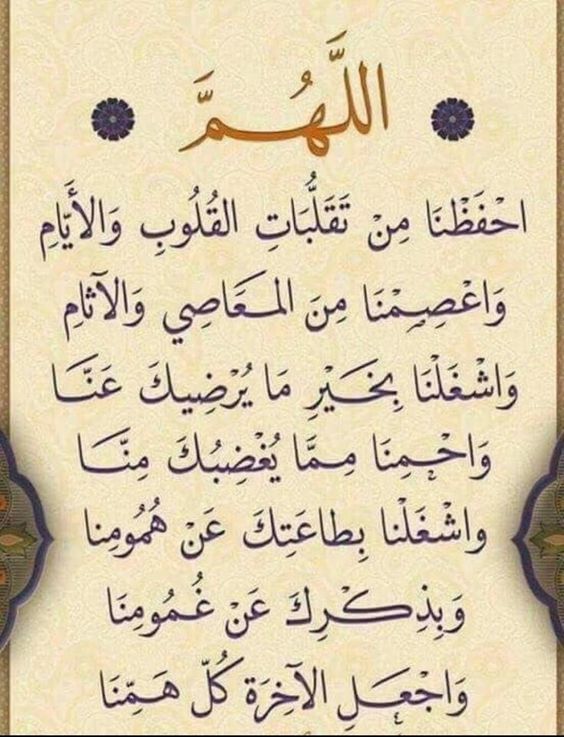 اللَّهُمَّ
احْفَظْنَا مِنْ تَقَلُّبَاتِ القُلُوبِ وَالأَيَّامِ
وَاعْصِمْنَا مِنَ المَعَاصِي وَالآثامِ
وَاشْغَلْنَا بِخَيْرِ مَا يُرْضِيكَ عَنَّا
وَاحْمِنَا مِمَّا يُغْضِبُكَ مِنَّا
واشْغَلْنا بِطاعَتِكَ عَنْ هُمُومِنا
وَبِذِكْرِكَ عَنْ غُمُومِنَا
وَاجْعَلِ الآخِرَةَ كُلّ هَمِّنَا